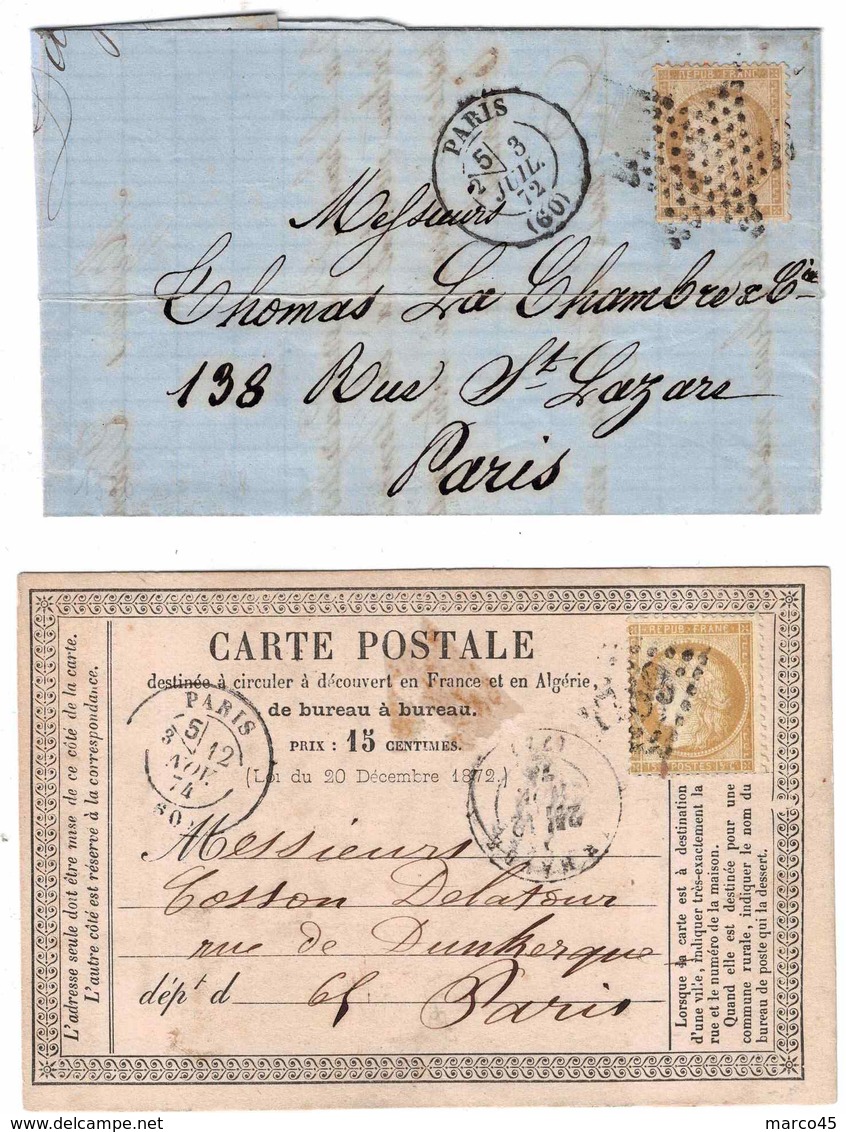 PARIS
5
3
2
JUIL.
72
(60)
REPUB FRANC
Messieurs
Thomas La Chambre & Cie
138 Rue St. Lazare
Paris
CARTE POSTALE
destinée à circuler à découvert en France et en Algérie,
de bureau à bureau.
PRIX : 15 CENTIMES.
(Loi du 20 Décembre 1872.)
L'adresse seule doit être mise de ce côté de la carte.
L'autre côté est réservé à la correspondance.
PARIS
5
12
3
NOV.
74
60
REPUB FRANC
15 POSTES 15 C
Messieurs
Cosson Delatour
rue de Dunkerque
dépt d 65 Paris
Lorsque la carte est à destination
d'une ville, indiquer très-exactement la
rue et le numéro de la maison.
Quand elle est destinée pour une
commune rurale, indiquer le nom du
bureau de poste qui la dessert.
marco45